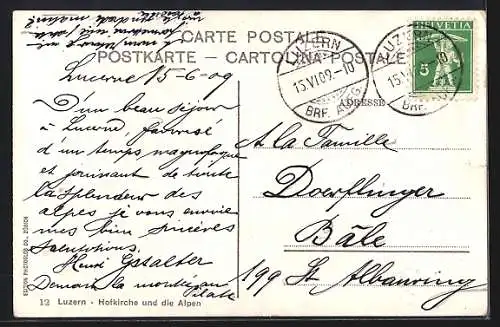 CARTE POSTALE
POSTKARTE - CARTOLINA POSTALE
HELVETIA
5
LUZERN
15.VI.09.-10
BRF. AUFG.
LUZERN
15.VI -10
BRF. AUFG.
ADRESSE
Lucerne 15-6-09
D'un beau séjour
à Lucerne, favorisé
d'un temps magnifique
et jouissant de toute
la splendeur des
alpes je vous envoie
mes bien sincères
salutations.
Henri Gstalter
Demain la montée au
Pilate
A la Famille
Doerflinger
Bâle
199 St. Albanring
12 Luzern - Hofkirche und die Alpen